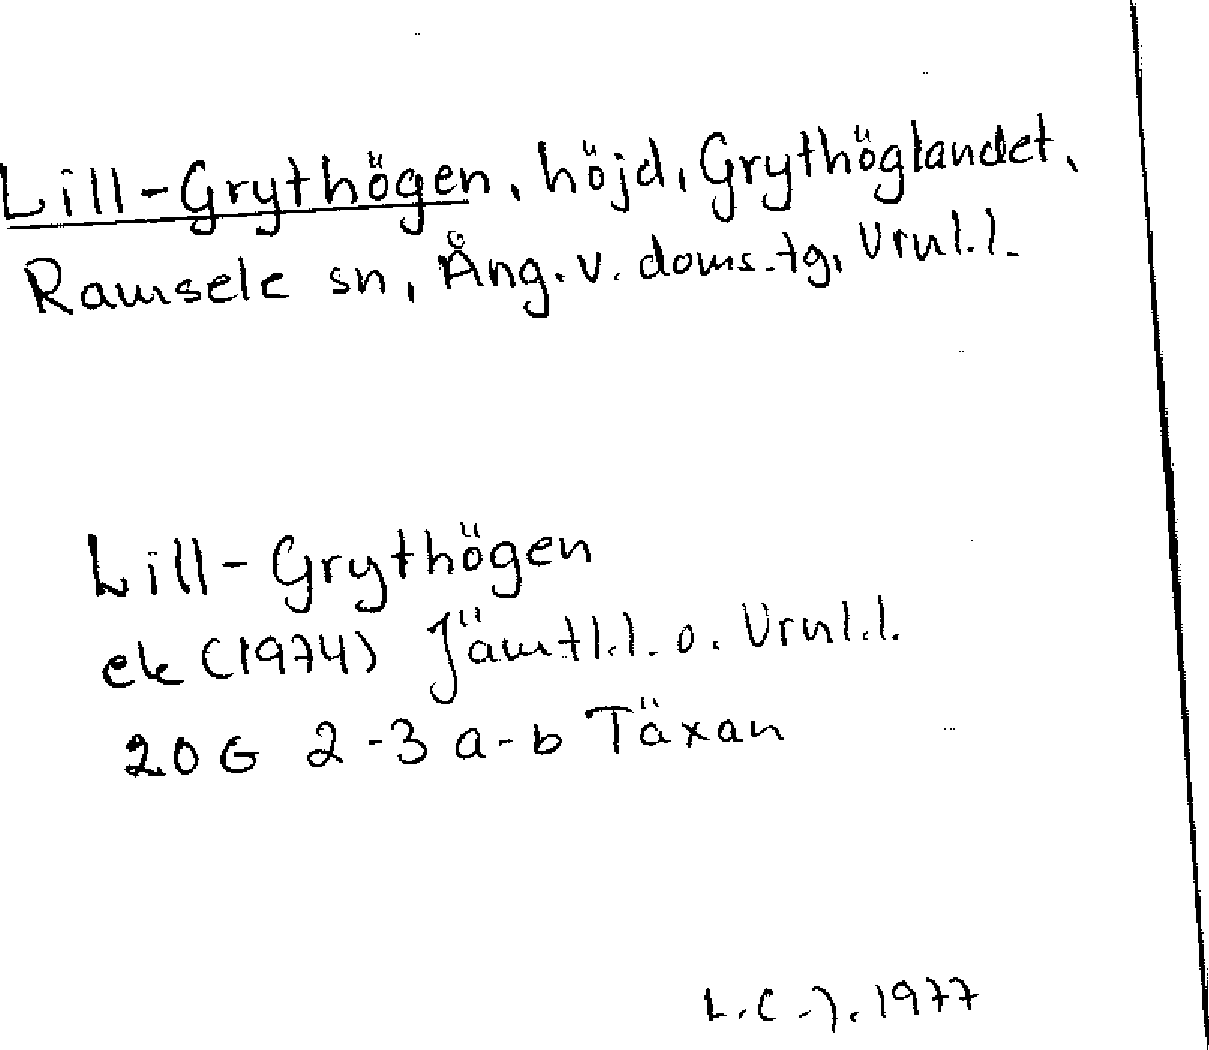 Lill-Grythögen, höjd, Grythöglandet,
Ramsele sn, Ång. v. doms.tg, Vrnl.l.
Lill-Grythögen
ek (1974) Jämtl.l. o. Vrnl.l.
20 G 2-3 a-b Täxan
L.C.J. 1977